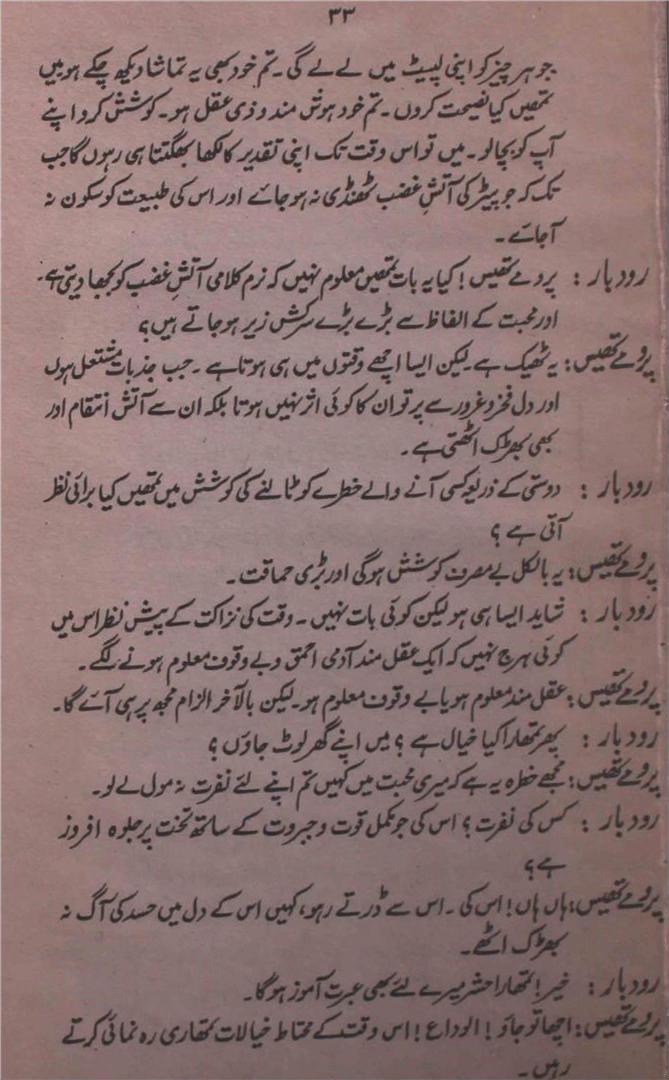 ۳۳
جو ہر چیز کو اپنی لپیٹ میں لے لے گی۔ تم خود بھی یہ تماشا دیکھ چکے ہو میں
تمھیں کیا نصیحت کروں۔ تم خود ہوش مند و ذی عقل ہو۔ کوشش کرو اپنے
آپ کو بچا لو۔ میں تو اس وقت تک اپنی تقدیر کا لکھا بھگتتا ہی رہوں گا جب
تک کہ جوپیٹر کی آتشِ غضب ٹھنڈی نہ ہو جائے اور اس کی طبیعت کو سکون نہ
آجائے۔
رودبار : پرومے تھیس! کیا یہ بات تمھیں معلوم نہیں کہ نرم کلامی آتشِ غضب کو بجھا دیتی ہے۔
اور محبت کے الفاظ سے بڑے بڑے سرکش زیر ہو جاتے ہیں؟
پرومے تھیس: یہ ٹھیک ہے لیکن ایسا اچھے وقتوں میں ہی ہوتا ہے۔ جب جذبات مشتعل ہوں
اور دل فخر و غرور سے پر تو ان کا کوئی اثر نہیں ہوتا بلکہ ان سے آتش انتقام اور
بھی بھڑک اٹھتی ہے۔
رودبار : دوستی کے ذریعہ کسی آنے والے خطرے کو ٹالنے کی کوشش میں تمھیں کیا برائی نظر
آتی ہے؟
پرومے تھیس: یہ بالکل بے مصرف کوشش ہوگی اور بڑی حماقت۔
رودبار : شاید ایسا ہی ہو لیکن کوئی بات نہیں۔ وقت کی نزاکت کے پیش نظر اس میں
کوئی ہرج نہیں کہ ایک عقل مند آدمی احمق و بے وقوف معلوم ہونے لگے۔
پرومے تھیس: عقل مند معلوم ہو یا بے وقوف معلوم ہو۔ لیکن بالآخر الزام مجھ پر ہی آئے گا۔
رودبار : پھر تمھارا کیا خیال ہے؟ میں اپنے گھر لوٹ جاؤں؟
پرومے تھیس: مجھے خطرہ یہ ہے کہ میری محبت میں کہیں تم اپنے لئے نفرت نہ مول لے لو۔
رودبار : کس کی نفرت؟ اس کی جو مکمل قوت و جبروت کے ساتھ تخت پر جلوہ افروز
ہے؟
پرومے تھیس: ہاں ہاں! اس کی۔ اس سے ڈرتے رہو، کہیں اس کے دل میں حسد کی آگ نہ
بھڑک اٹھے۔
رودبار : خیر! تمھارا حشر میرے لئے بھی عبرت آموز ہوگا۔
پرومے تھیس: اچھا تو جاؤ! الوداع! اس وقت کے محتاط خیالات تمھاری رہ نمائی کرتے
رہیں۔